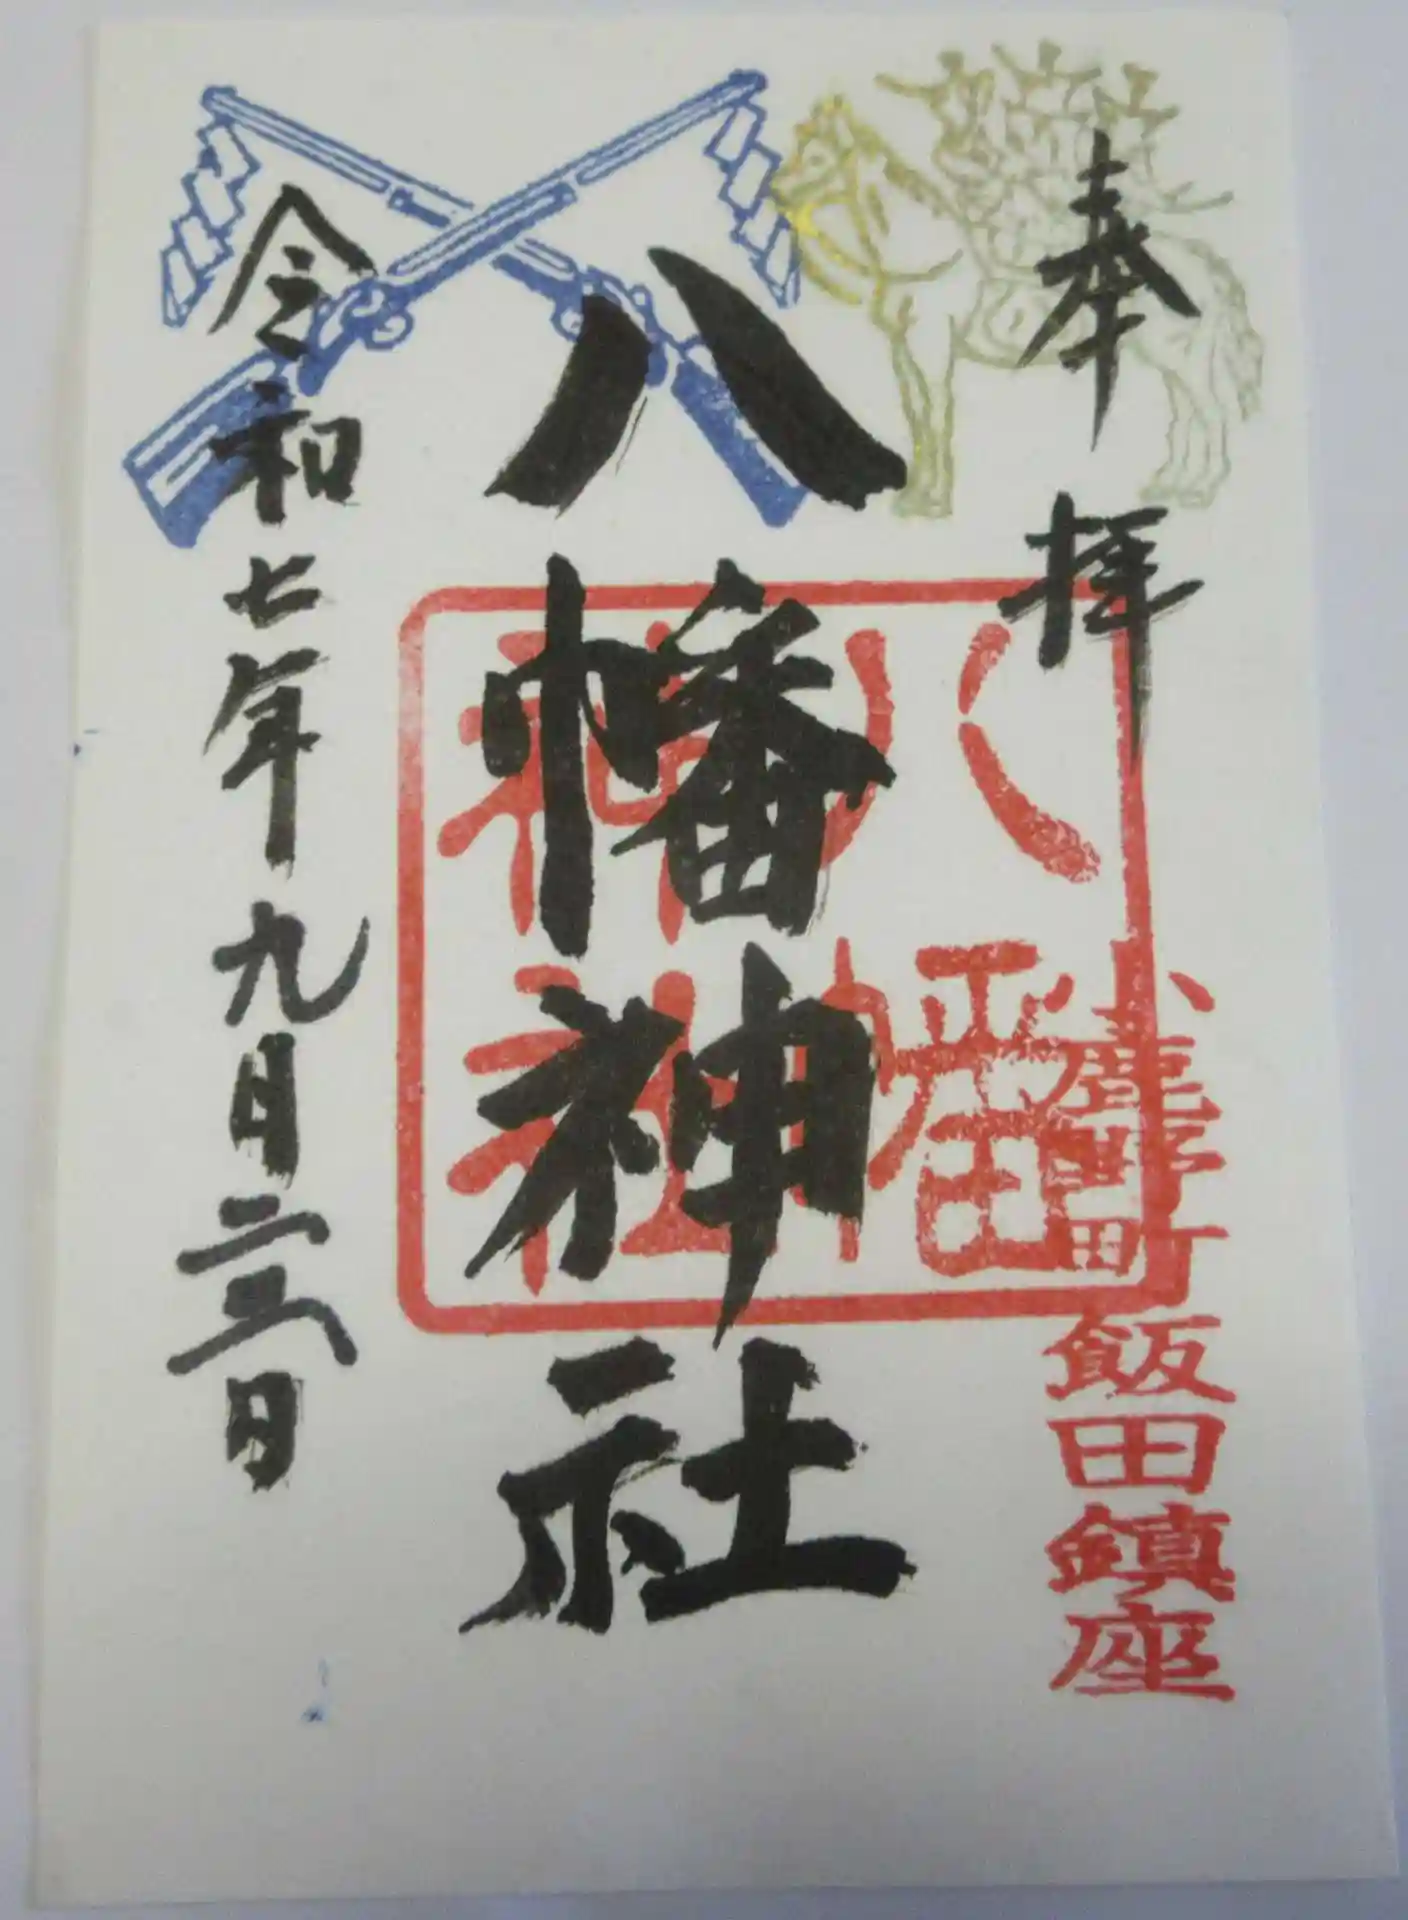 奉拝
小鹿野町飯田鎮座
八幡神社
八幡
神社
令和七年九月二三日